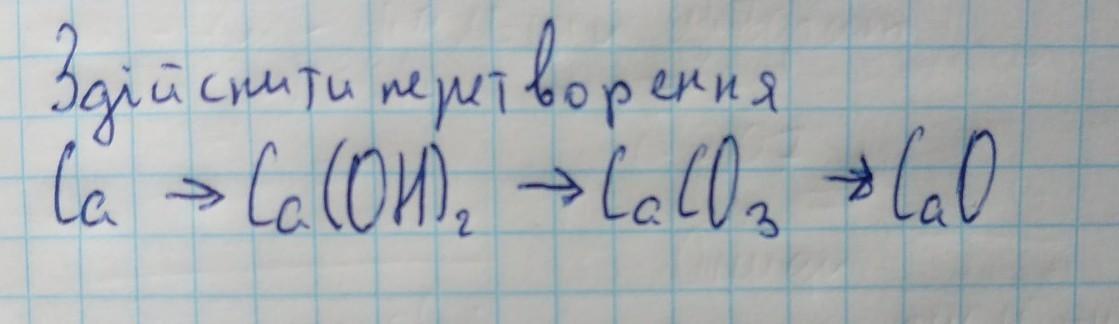 Здійснити перетворення
Ca → Ca(OH)₂ → CaCO₃ → CaO